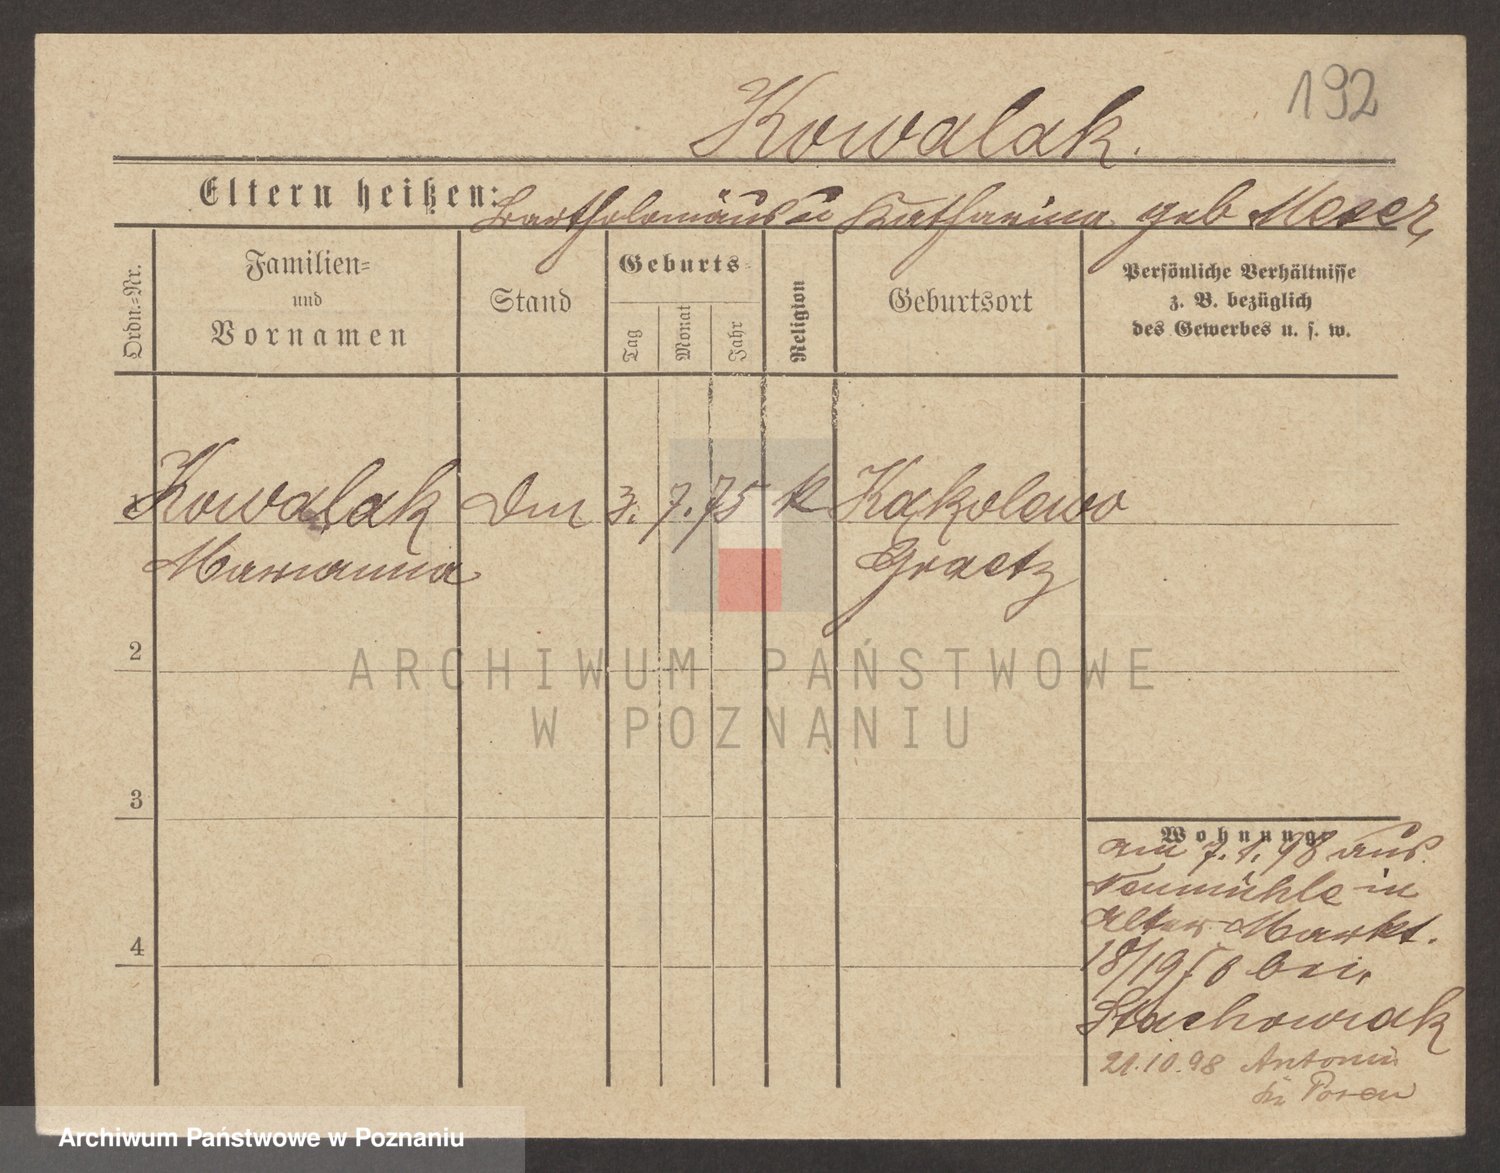 192
Kowalak.
Eltern heißen: Bartholomäus u Katharina geb Meser,
Ordn.=Nr.
Familien=
und
Vornamen
Stand
Geburts=
Tag
Monat
Jahr
Religion
Geburtsort
Persönliche Verhältnisse
z. B. bezüglich
des Gewerbes u. s. w.
1 Kowalak
Marianna
3. 7. 75 K Kąkolewo
Graetz
2
3
4
ARCHIWUM PAŃSTWOWE
W POZNANIU
Wohnung
am 7.1.98 aus
Neumühle in
Alter Markt.
18/19 bei
Stachowiak
21.10.98
in Posen
Archiwum Państwowe w Poznaniu